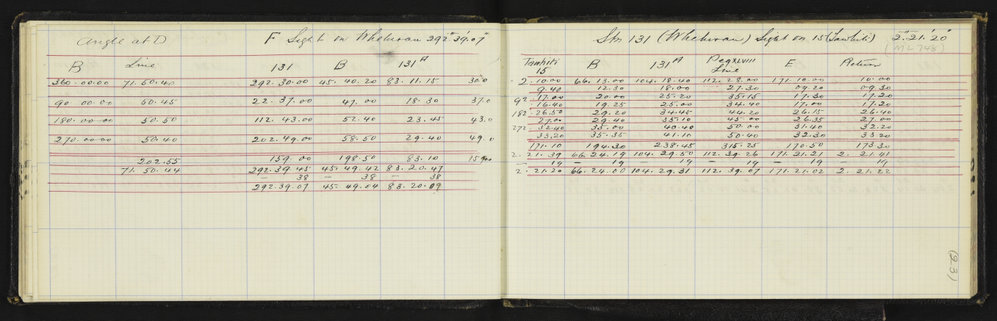 Angle at D
F Sight on Wheturan 292° 39' 07"
B Line 131 B 131A
360.00.00 71.50.40 292.30.00 45.40.20 83.11.15 30.0
90.00.00 50.45 22.37.00 47.00 18.30 37.0
180.00.00 50.50 112.43.00 52.40 23.45 43.0
270.00.00 50.40 202.49.00 58.50 29.40 49.0
202.55 159.00 198.50 83.10
71.50.44 292.39.45 45.49.42 83.20.47
— 38 — 38 — 38
292.39.07 45.49.04 83.20.09
Stn 131 (Wheturan) Sight on 15 (Tawhiti) 2° 21' 20"
(ML 748)
Tawhiti 15 B 131A Line E Return
2.10.00 66.13.00 104.18.40 112.28.00 171.10.00 10.00
9.40 12.30 18.00 27.30 09.20 09.30
92 17.00 20.00 25.20 35.15 17.30 17.20
16.40 19.25 25.00 34.40 17.00 17.20
182 26.50 29.20 34.45 44.20 26.15 26.40
27.00 29.40 35.10 45.00 26.35 27.00
272 32.40 35.00 40.40 50.00 31.40 32.20
33.20 35.35 41.10 50.40 32.30 33.20
171.10 194.30 238.45 315.25 170.50 173.30
2.21.39 66.24.19 104.29.50 112.39.26 171.21.21 2.21.41
19 — 19 — 19 19 — 19 19
2.21.20 66.24.00 104.29.31 112.39.07 171.21.02 2.21.22
(23)